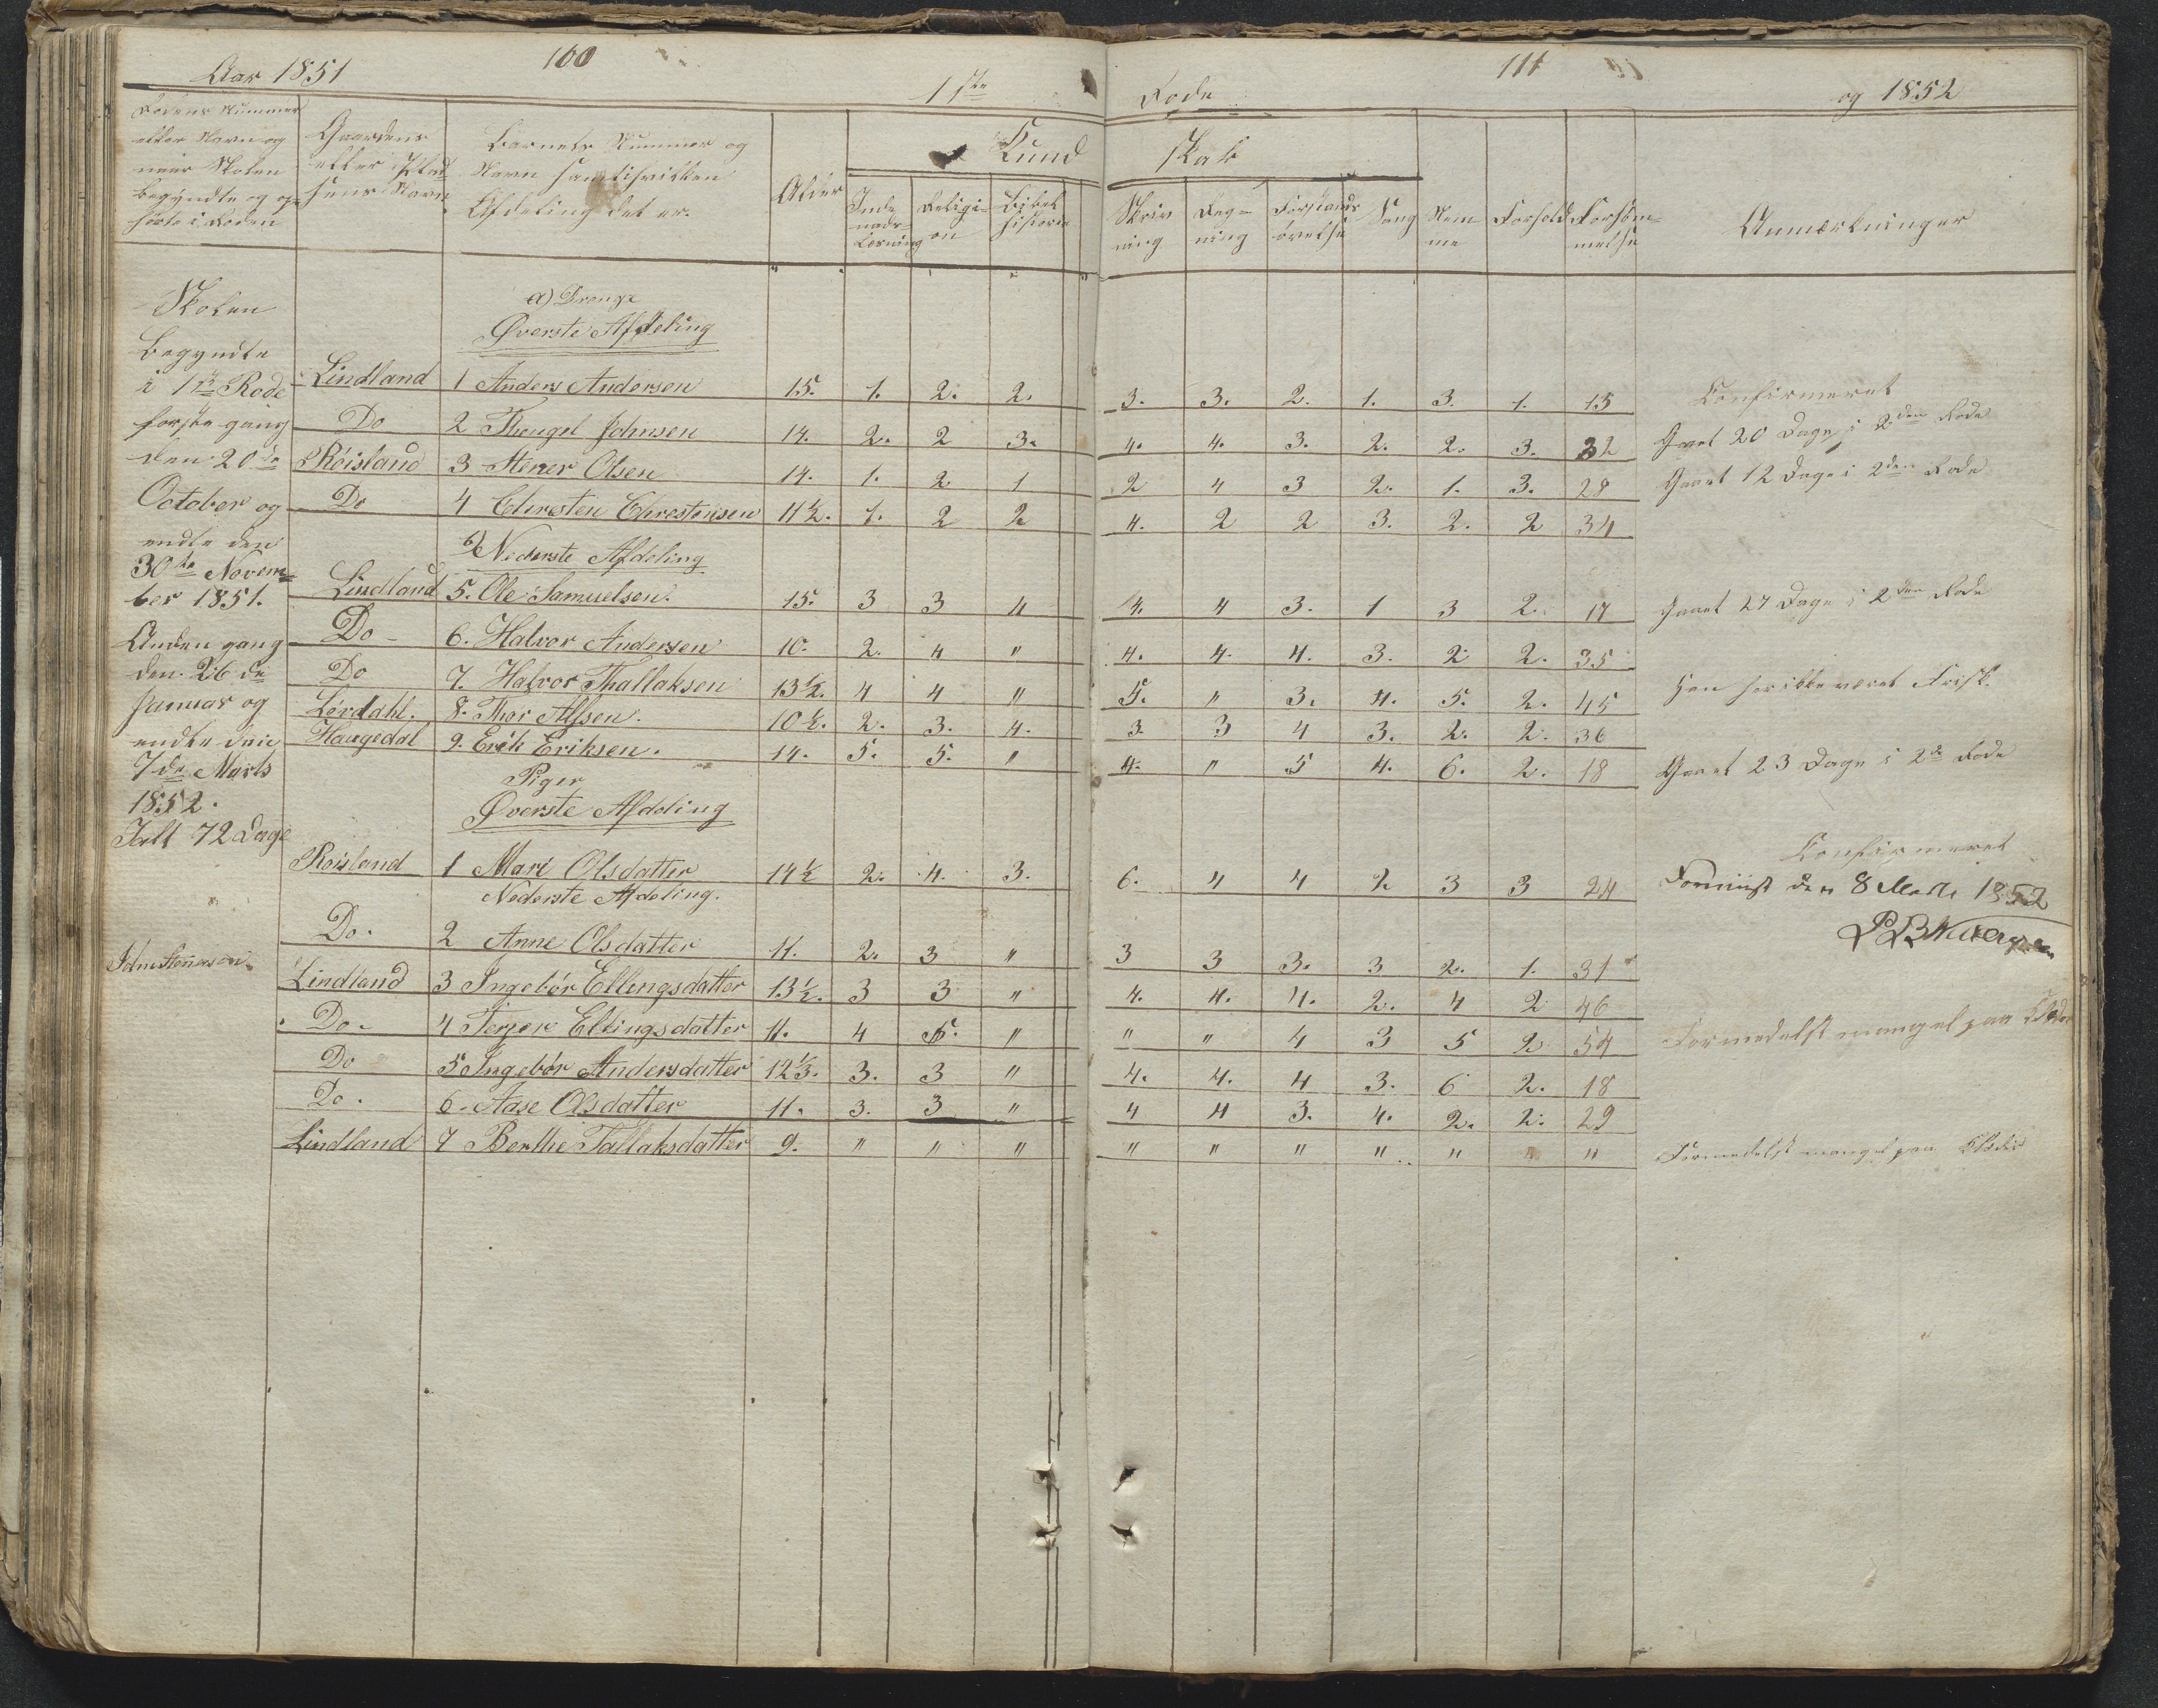 Aar 1851 160 1ste Rode 111 og 1852
Rodens Nummer
eller Navn og
naar Skolen
begyndte og op=
hørte i Roden
Gaardens
eller Plad
sens Navn
Barnets Nummer og
Navn samt hvilken
Afdeling det er.
Alder
Kund skab
Inde
nads
Læsning
Religi=
on
Bibel
historie
Skriv
ning
Reg=
ning
Forstands
øvelse
Sang
Nem
me
Forhold
Forsøm=
melse
Anmærkninger
Skolen
begyndte
i 1ste Rode
første gang
den 20de
October og
endte den
30te Novem=
ber 1851.
Anden gang
den 26de
Januar og
endte den
7de Marts
1852.
Ialt 72 Dage
a) Drenge
Øverste Afdeling
Lindland 1 Anders Andersen 15. 1. 2. 2. 3. 3. 2. 1. 3. 1. 15 Confirmeret
Do 2 Thengel Johnsen 14. 2. 2 3. 4. 4. 3. 2. 2. 3. 32 Gaaet 20 Dage i 2den Rode
Røisland 3 Stener Olsen 14. 1. 2 1 2 4 3 2. 1. 3. 28 Gaaet 12 Dage i 2den Rode
Do 4 Chresten Chrestensen 11½. 1. 2 2 4. 2 2 3. 2. 2 34
b) Nederste Afdeling
Lindland 5. Ole Samuelsen. 15. 3 3 4 4. 4 3. 1 3 2. 17 Gaaet 27 Dage i 2den Rode
Do 6. Halvor Andersen 10. 2. 4 " 4. 4. 4. 3. 2 2. 35
Do 7. Halvor Thallaksen 13½. 4 4 " 5. " 3. 4. 5. 2. 45 Han har ikke været Frisk.
Lørdahl. 8. Thor Alfsen. 10½. 2. 3. 4. 3. 3 4 3. 2. 2. 36
Haugedal 9. Erik Eriksen. 14. 5. 5. " 4. " 5 4. 6. 2. 18 Gaaet 23 Dage i 2de Rode
Piger
Øverste Afdeling
Røisland 1 Mari Olsdatter 14½ 2. 4. 3. 6. 4 4 2 3 3 24 Confirmeret
Nederste Afdeling.
den 8 Marts 1852
Do. 2 Anne Olsdatter 11. 2. 3 " 3 3 3. 3 2. 1. 31
Lindland 3 Ingebør Ellingsdatter 13½. 3 3 " 4. 4. 4. 2. 4 2 46
Do. 4 Terjer Ellingsdatter 11. 4 5. " " " 4 3 5 2 54 Formedelst mangel paa Klæder
Do 5 Ingebør Andersdatter 12⅓. 3. 3 " 4. 4. 4 3. 6 2. 18
Do. 6. Aase Olsdatter 11. 3. 3 " 4 4 3. 4. 2. 2. 29
Lindland 7 Berthe Tallaksdatter 9. " " " " " " " " " " Formedelst mangel paa Klæder